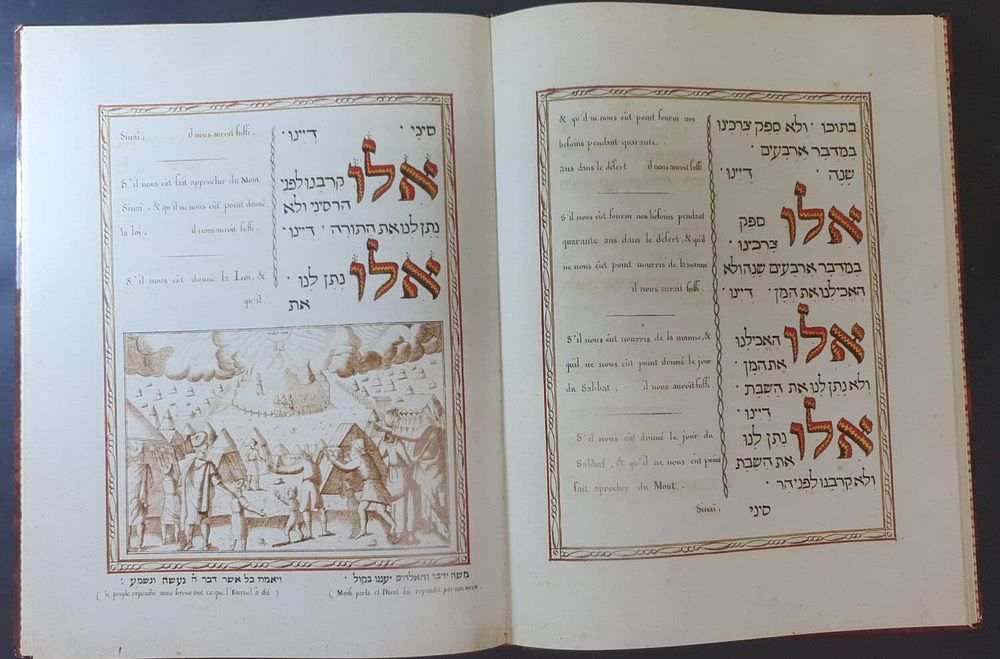 בתוכו · ולא ספק צרכינו
במדבר ארבעים ·
שנה · דיינו ·
אלו ספק
צרכינו ·
במדבר ארבעים שנה ולא
האכילנו את המן · דיינו ·
אלו האכילנו
את המן ·
ולא נתן לנו את השבת
דיינו ·
אלו נתן לנו
את השבת
ולא קרבנו לפני הר ·
סיני
& qu'il ne nous eût point fourni nos
besoins pendant quarante
ans dans le désert il nous auroit suffi.
S'il nous eût fourni nos besoins pendant
quarante ans dans le désert, & qu'il
ne nous eût point nourris de la manne
il nous aurait suffi.
S'il nous eût nourris de la manne, &
qu'il ne nous eût point donné le jour
du Sabbat; il nous auroit suffi.
S'il nous eût donné le jour du
Sabbat, & qu'il ne nous eût point
fait aprocher du Mont
Sinai;
סיני · דיינו ·
אלו קרבנו לפני
הר סיני ולא
נתן לנו את התורה · דיינו ·
אלו נתן לנו
את
Sinai; il nous auroit suffi.
S'il nous eût fait approcher du Mont
Sinai & qu'il ne nous eût point donné
la loi; il nous auroit suffi.
S'il nous eût donné la Loi, &
qu'il
משה ידבר והאלהים יעננו בקול ·
ויאמרו כל אשר דבר ה' נעשה ונשמע :
( Moïse parla et Dieu lui repondit par une voix
( le peuple repondit nous ferons tout ce que l'Eternel a dit )